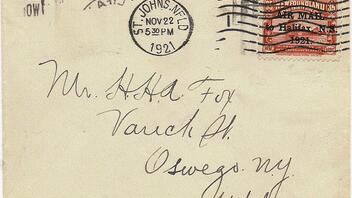 NOW!
ST. JOHNS. NFLD
NOV 22
5 30 PM
1921
NEWFOUNDLAND
35
AIR MAIL
to Halifax, N.S.
1921.
Mr. H. H. A. Fox
Varick St.
Oswego. N.Y.